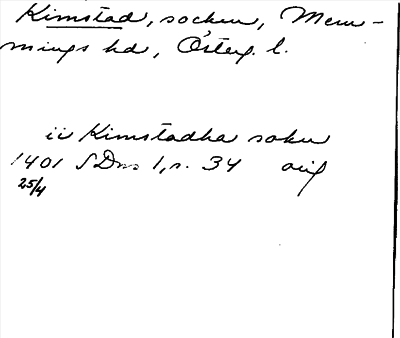 Kimstad, socken, Mem-
mings hd, Österg. l.
ii Kimstadha sokn
1401 SDns 1, s. 34 orig
25/4